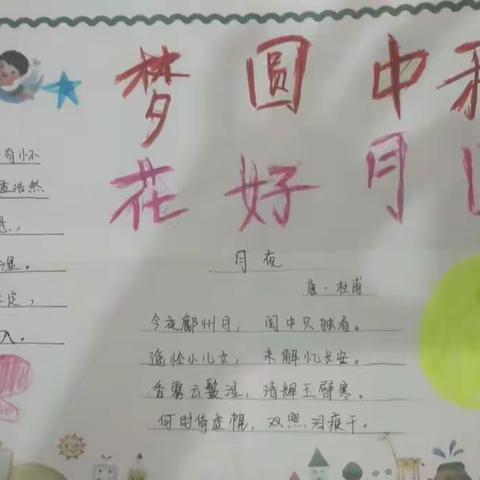 梦 圆 中 秋
花 好 月 圆
有怀
孟浩然
湿。
定，
入。
月夜
唐·杜甫
今夜鄜州月，闺中只独看。
遥怜小儿女，未解忆长安。
香雾云鬓湿，清辉玉臂寒。
何时倚虚幌，双照泪痕干。